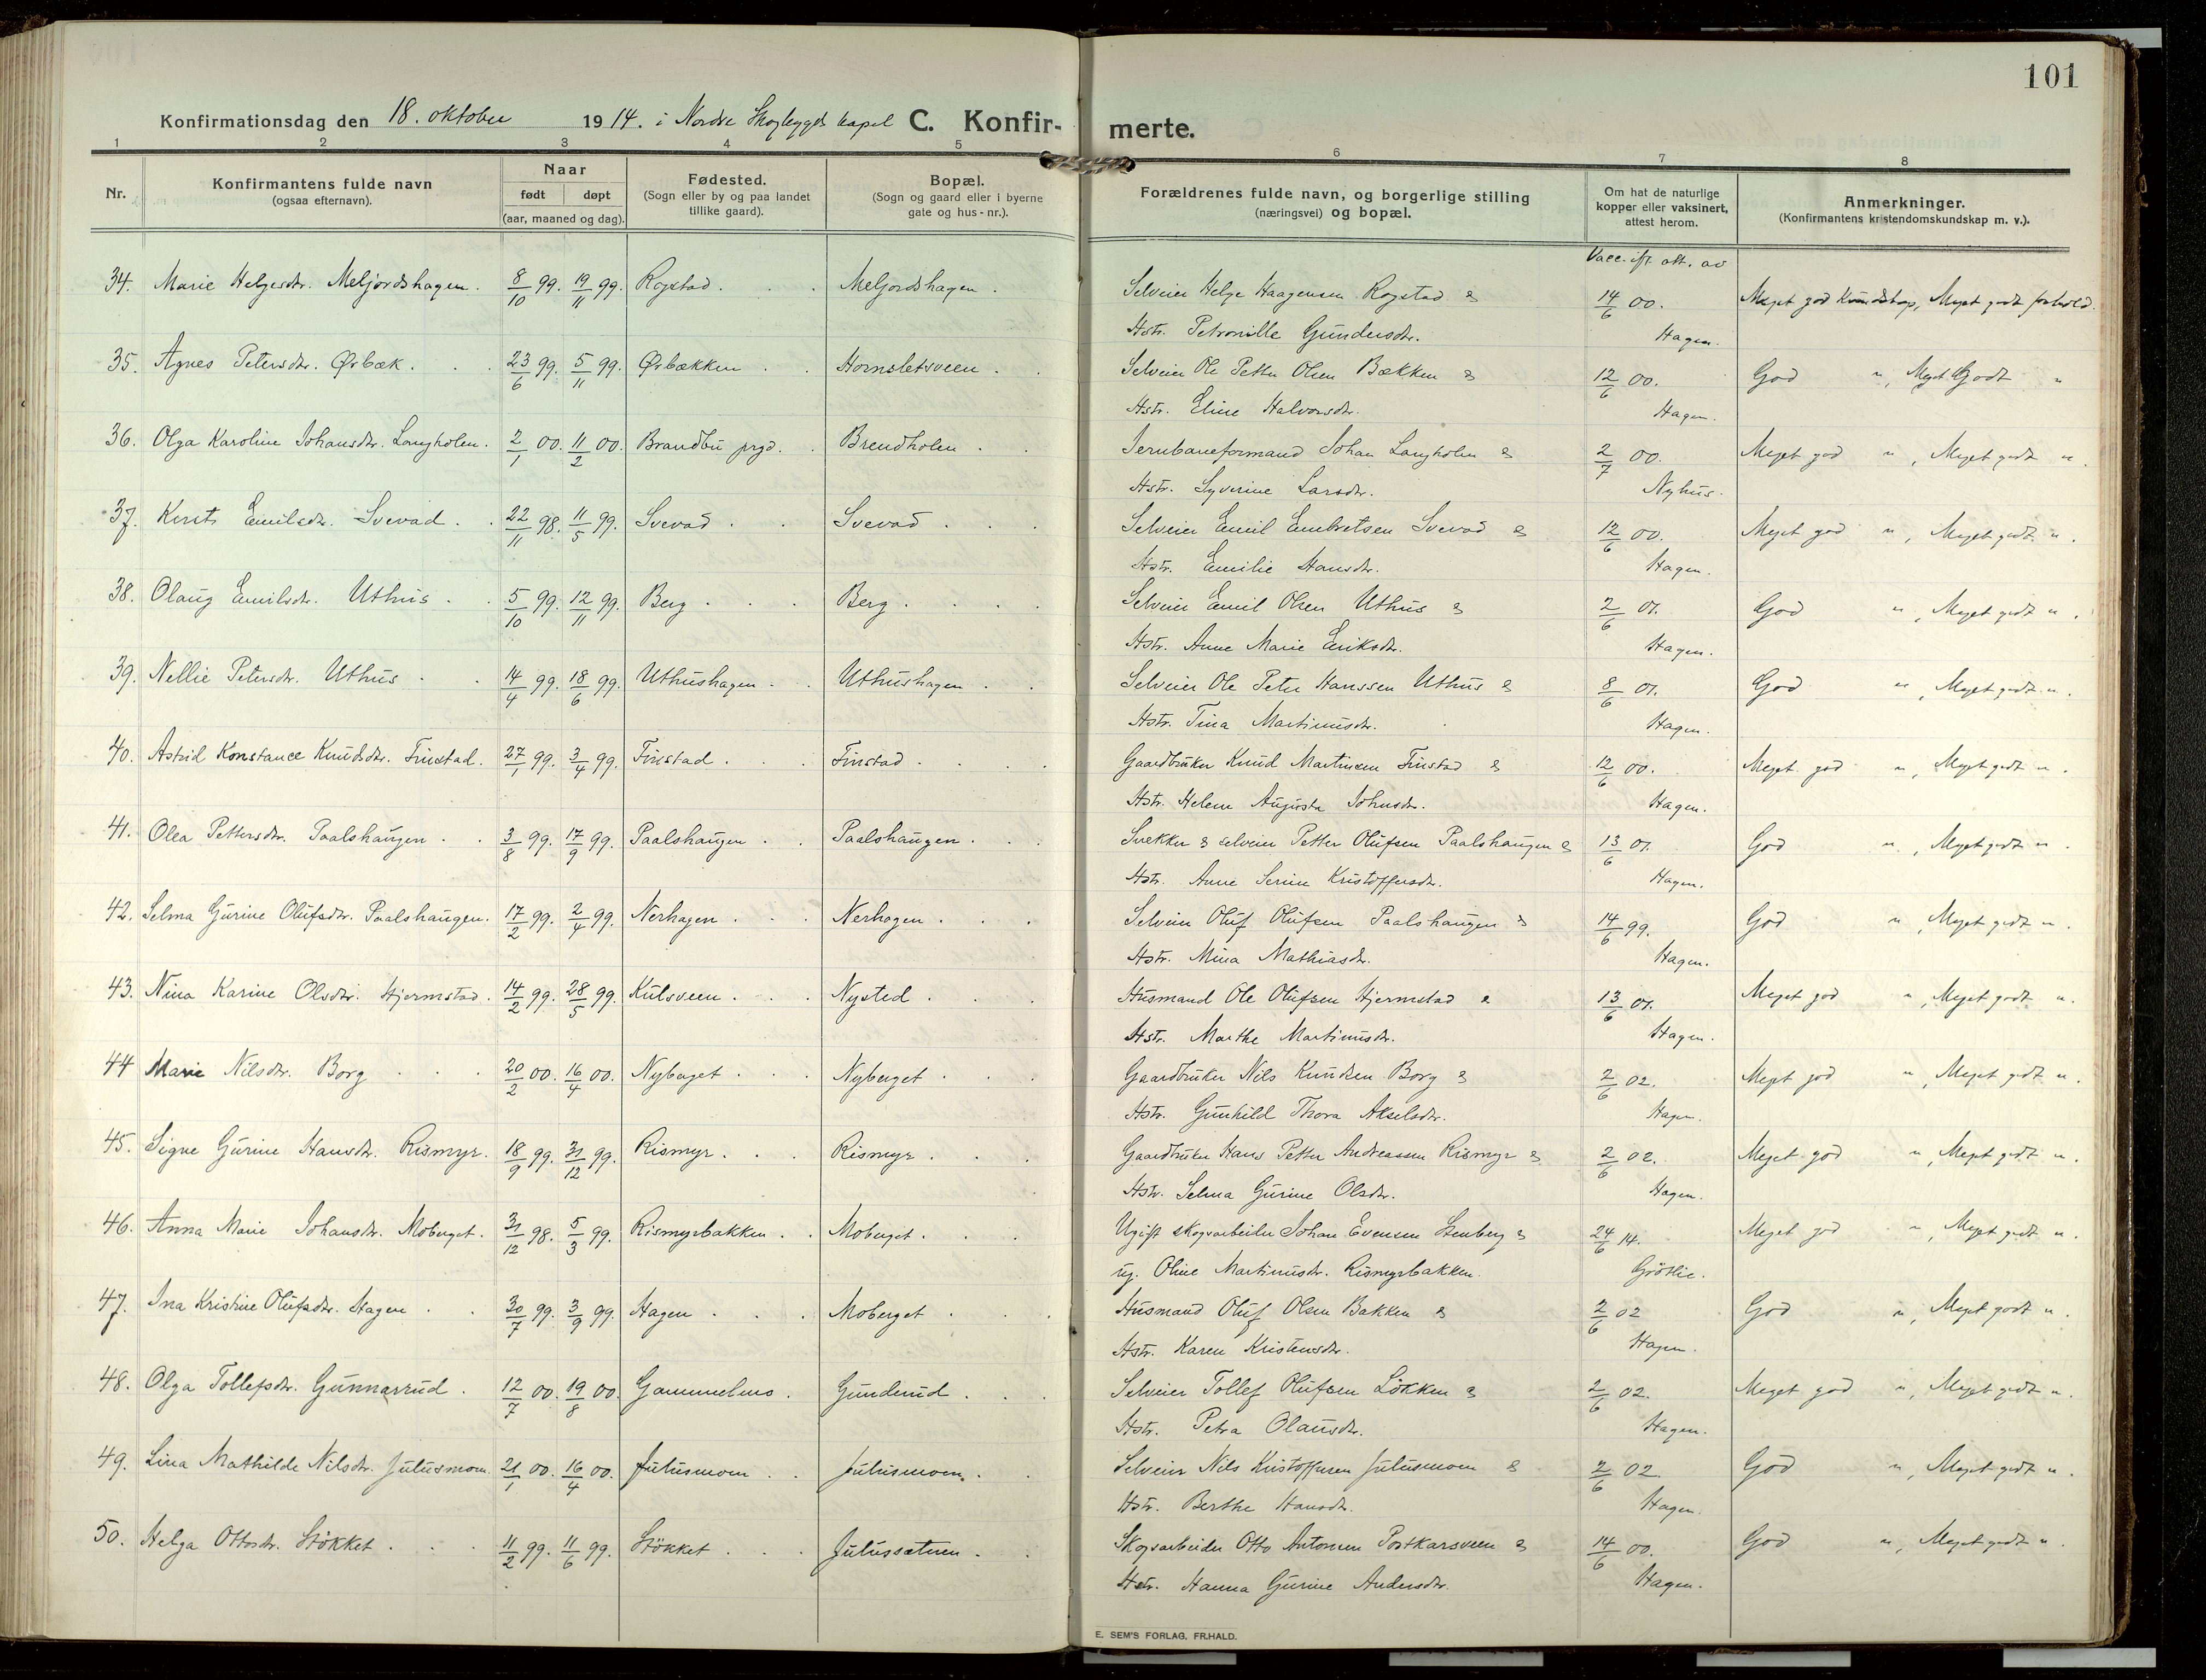 101
Konfirmationsdag den 18. oktober 1914. i Nordre Skogbygds kapel C. Konfir- merte.
1 2 3 4 5 6 7 8
Nr. Konfirmantens fulde navn (ogsaa efternavn). Naar født døpt (aar, maaned og dag). Fødested. (Sogn eller by og paa landet tillike gaard). Bopæl. (Sogn og gaard eller i byerne gate og hus-nr.). Forældrenes fulde navn, og borgerlige stilling (næringsvei) og bopæl. Om hat de naturlige kopper eller vaksinert, attest herom. Anmerkninger. (Konfirmantens kristendomskundskap m. v.).
Vacc. ifl. att. av
34. Marie Helgesdtr. Meljordshagen. 8/10 99. 19/11 99. Rogstad. Meljordshagen. Selveier Helge Haagensen Rogstad & 14/6 00. Meget god Kundskap, Meget godt forhold.
Hstr. Petronille Gundersdtr. Hagen.
35. Agnes Petersdtr. Ørbæk. 23/6 99. 5/11 99. Ørbækken Hornsletsveen. Selveier Ole Petter Olsen Bækken & 12/6 00. God ", Meget Godt "
Hstr. Eline Halvorsdtr. Hagen.
36. Olga Karoline Johansdtr. Langholen. 2/1 00. 11/2 00. Brandbu prgd. Brendholen. Jernbaneformand Johan Langholen & 2/7 00. Meget god ", Meget godt ".
Hstr. Syverine Larsdtr. Nyhus.
37. Kirsti Emilsdtr. Svevad. 22/11 98. 11/5 99. Svevad. Svevad. Selveier Emil Embretsen Svevad & 12/6 00. Meget god ", Meget godt ".
Hstr. Emilie Hansdtr. Hagen.
38. Olaug Emilsdtr. Uthus. 5/10 99. 12/11 99. Berg. Berg. Selveier Emil Olsen Uthus & 2/6 01. God ", Meget godt ".
Hstr. Anne Marie Eriksdtr. Hagen.
39. Nellie Petersdtr. Uthus 14/4 99. 18/6 99. Uthushagen. Uthushagen. Selveier Ole Peter Hanssen Uthus & 8/6 01. God ", Meget godt ".
Hstr. Tina Martinusdtr. Hagen.
40. Astrid Konstance Knudsdtr. Finstad. 27/1 99. 3/4 99. Finstad. Finstad. Gaardbruker Knud Martinsen Finstad & 12/6 00. Meget god ", Meget godt ".
Hstr. Helene Augusta Johnsdtr. Hagen.
41. Olea Pettersdtr. Paalshaugen. 3/8 99. 17/9 99. Paalshaugen. Paalshaugen. Snekker & selveier Petter Olufsen Paalshaugen & 13/6 01. God ", Meget godt ".
Hstr. Anne Serine Kristoffersdtr. Hagen.
42. Selma Gurine Olufsdtr. Paalshaugen. 17/2 99. 2/4 99. Nerhagen. Nerhagen. Selveier Oluf Olufsen Paalshaugen & 14/6 99. God ", Meget godt ".
Hstr. Mina Mathiasdtr. Hagen.
43. Nina Karine Olsdtr. Hjermstad. 14/2 99. 28/5 99. Kulsveen. Nysted. Husmand Ole Olufsen Hjermstad & 13/6 01. Meget god ", Meget godt ".
Hstr. Marthe Martinusdtr. Hagen.
44 Marie Nilsdtr. Borg 20/2 00. 16/4 00. Nyberget. Nyberget. Gaardbruker Nils Knudsen Borg & 2/6 02. Meget god ", Meget godt ".
Hstr. Gunhild Thora Akselsdtr. Hagen.
45. Signe Gurine Hansdtr. Rismyr. 18/9 99. 31/12 99. Rismyr. Rismyr. Gaardbruker Hans Petter Andreassen Rismyr & 2/6 02. Meget god ", Meget godt ".
Hstr. Selma Gurine Olsdtr. Hagen.
46. Anna Marie Johansdtr. Moberget. 31/12 98. 5/3 99. Rismyrbakken. Moberget. Ugift skogsarbeider Johan Evensen Stenberg & 24/6 14. Meget god ", Meget godt ".
ug. Oline Martinusdtr. Rismyrbakken. Grøtlie.
47. Ina Kristine Olufsdtr. Hagen 30/7 99. 3/9 99. Hagen. Moberget. Husmand Oluf Olsen Bakken & 2/6 02 God ", Meget godt ".
Hstr. Karen Kristensdtr. Hagen.
48. Olga Tollefsdtr. Gunnarrud. 12/7 00. 19/8 00. Gammelmo. Gunderud. Selveier Tollef Olufsen Løkken & 2/6 02. Meget god ", Meget godt ".
Hstr. Petra Olausdtr. Hagen.
49. Lina Mathilde Nilsdtr. Julusmoen. 21/1 00. 16/4 00. Julusmoen. Julusmoen. Selveier Nils Kristoffersen Julusmoen & 2/6 02. God ", Meget godt ".
Hstr. Berthe Hansdtr. Hagen.
50. Helga Ottosdtr. Støkket. 11/2 99. 11/6 99. Støkket. Julussætren. Skogsarbeider Otto Antonsen Postkarsveen & 14/6 00. God ", Meget godt ".
Hstr. Hanna Gurine Andersdtr. Hagen.
E. SEM'S FORLAG, FR.HALD.